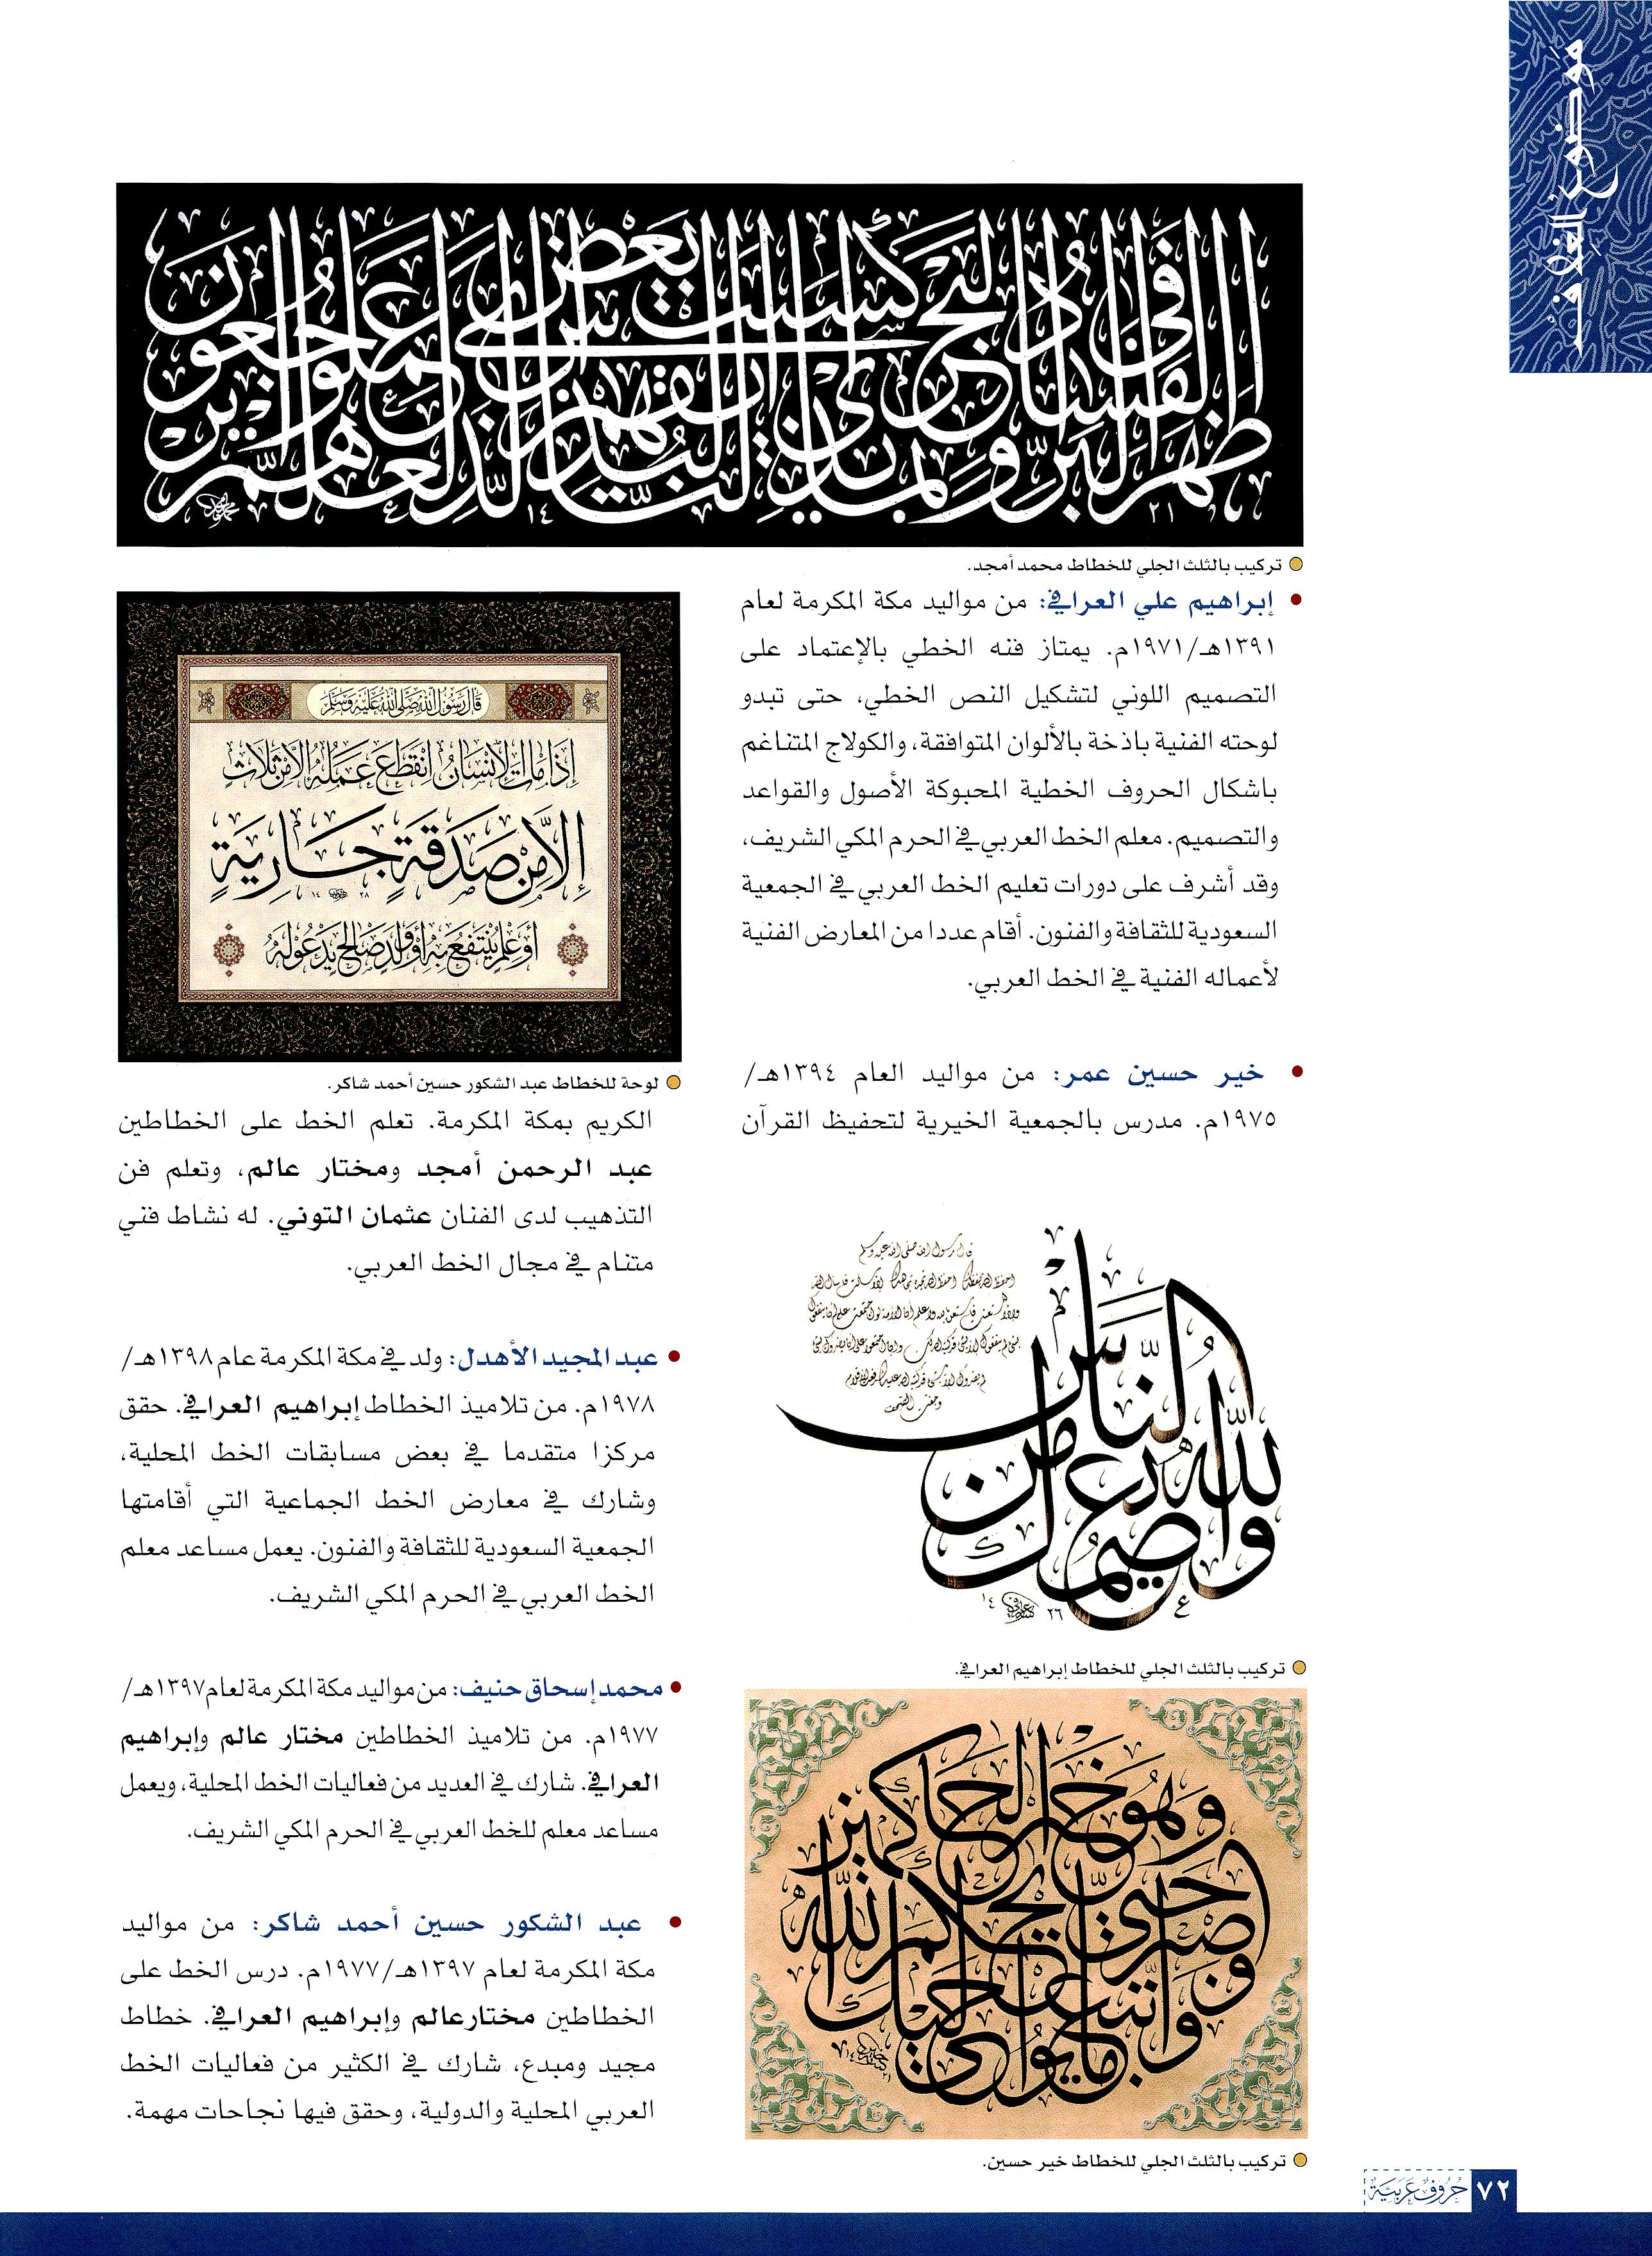 موضوع الغلاف
ظهر الفساد في البر والبحر بما كسبت أيدي الناس ليذيقهم بعض الذي عملوا لعلهم يرجعون
٢١ ١٤
تركيب بالثلث الجلي للخطاط محمد أمجد.
إبراهيم علي العرافي: من مواليد مكة المكرمة لعام
١٣٩١هـ/١٩٧١م. يمتاز فنه الخطي بالإعتماد على
التصميم اللوني لتشكيل النص الخطي، حتى تبدو
لوحته الفنية باذخة بالألوان المتوافقة، والكولاج المتناغم
باشكال الحروف الخطية المحبوكة الأصول والقواعد
والتصميم. معلم الخط العربي في الحرم المكي الشريف،
وقد أشرف على دورات تعليم الخط العربي في الجمعية
السعودية للثقافة والفنون. أقام عددا من المعارض الفنية
لأعماله الفنية في الخط العربي.
خير حسين عمر: من مواليد العام ١٣٩٤هـ/
١٩٧٥م. مدرس بالجمعية الخيرية لتحفيظ القرآن
والله يعصمك من الناس
قال رسول الله صلى الله عليه وسلم
٢٦ ١٤
تركيب بالثلث الجلي للخطاط إبراهيم العرافي.
واتبع ما يوحى إليك واصبر حتى يحكم الله وهو خير الحاكمين
تركيب بالثلث الجلي للخطاط خير حسين.
قال رسول الله صلى الله عليه وسلم
إذا مات الإنسان انقطع عمله إلا من ثلاث
إلا من صدقة جارية
٢٨ ١٤
أو علم ينتفع به أو ولد صالح يدعو له
لوحة للخطاط عبد الشكور حسين أحمد شاكر.
الكريم بمكة المكرمة. تعلم الخط على الخطاطين
عبد الرحمن أمجد ومختار عالم، وتعلم فن
التذهيب لدى الفنان عثمان التوني. له نشاط فني
متنام في مجال الخط العربي.
عبد المجيد الأهدل: ولد في مكة المكرمة عام ١٣٩٨هـ/
١٩٧٨م. من تلاميذ الخطاط إبراهيم العرافي. حقق
مركزا متقدما في بعض مسابقات الخط المحلية،
وشارك في معارض الخط الجماعية التي أقامتها
الجمعية السعودية للثقافة والفنون. يعمل مساعد معلم
الخط العربي في الحرم المكي الشريف.
محمد إسحاق حنيف: من مواليد مكة المكرمة لعام ١٣٩٧هـ/
١٩٧٧م. من تلاميذ الخطاطين مختار عالم وإبراهيم
العرافي. شارك في العديد من فعاليات الخط المحلية، ويعمل
مساعد معلم للخط العربي في الحرم المكي الشريف.
عبد الشكور حسين أحمد شاكر: من مواليد
مكة المكرمة لعام ١٣٩٧هـ/١٩٧٧م. درس الخط على
الخطاطين مختار عالم وإبراهيم العرافي. خطاط
مجيد ومبدع، شارك في الكثير من فعاليات الخط
العربي المحلية والدولية، وحقق فيها نجاحات مهمة.
٧٢ حروف عربية